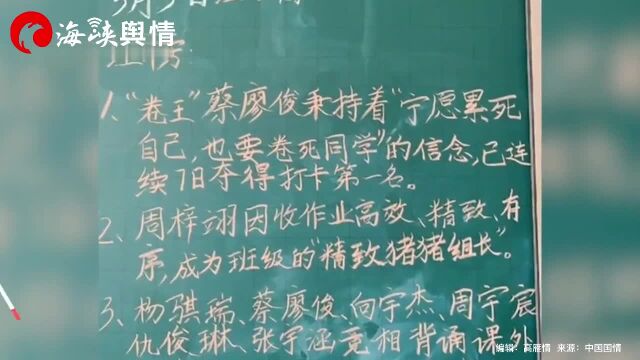 海峡舆情
1、“卷王”蔡廖俊秉持着“宁愿累死
自己,也要卷死同学”的信念,已连
续7日夺得打卡第一名。
2、周梓翊因收作业高效、精致、有
序,成为班级的“精致猪猪组长”。
3、杨骐瑞、蔡廖俊、向宇杰、周宇宸
仇俊琳、张宇涵竞相背诵课外
编辑:高雁情 来源:中国国情